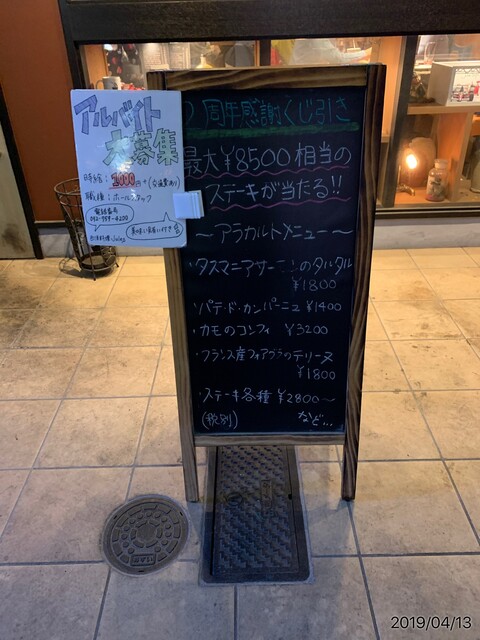 アルバイト
大募集
時給：2000円+(交通費あり)
職種：ホールスタッフ
電話番号
周年感謝くじ引き
最大¥8500相当の
ステーキが当たる!!
～アラカルトメニュー～
・タスマニアサーモンのタルタル
¥1800
・パテ・ド・カンパーニュ ¥1400
・カモのコンフィ ¥3200
・フランス産フォアグラのテリーヌ
¥1800
・ステーキ各種 ¥2800～
(税別) など...
2019/04/13